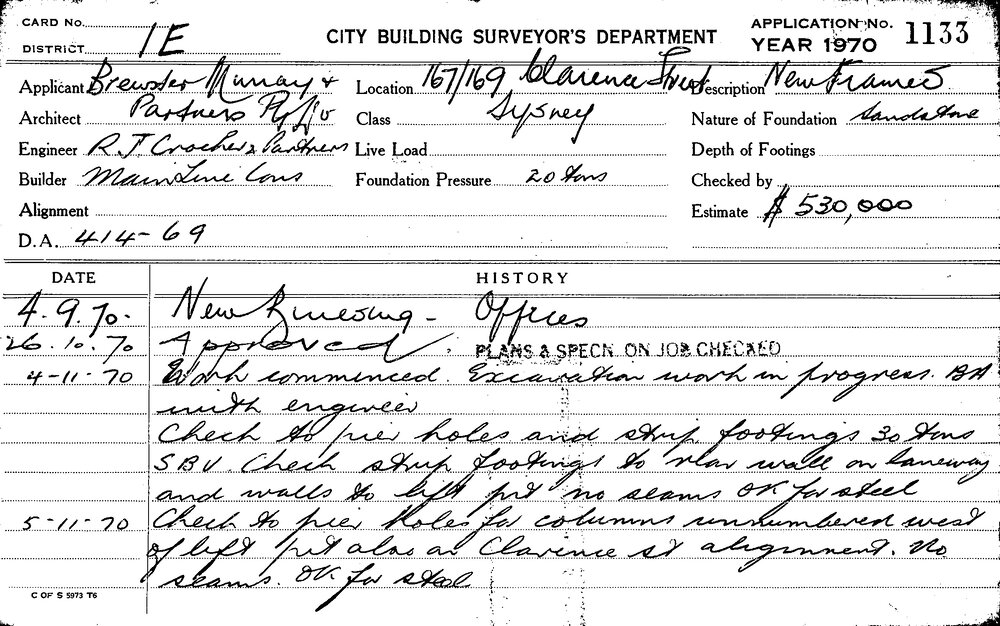 CARD No.
DISTRICT 1E
CITY BUILDING SURVEYOR'S DEPARTMENT
APPLICATION No. 1133
YEAR 1970
Applicant Brewster Murray &
Architect Partners P/L
Engineer R.J Crocher & Partners
Builder Main Line Cons
Alignment
D.A. 414-69
Location 167/169 Clarence Street
Class Sydney
Live Load
Foundation Pressure 20 tons
Description New Frames
Nature of Foundation Sandstone
Depth of Footings
Checked by
Estimate $ 530,000
DATE HISTORY
4.9.70. New Building - Offices
26.10.70 Approved. PLANS & SPECN. ON JOB CHECKED
4-11-70 Work commenced. Excavation work in progress.
with engineer
Check to pier holes and strip footings 30 tons
SBV. Check strip footings to rear wall on laneway
and walls to lift pit no seams OK for steel
5-11-70 Check to pier holes for columns unnumbered west
of lift pit also on Clarence st alignment. No
seams. OK for steel
C OF S 5973 T6